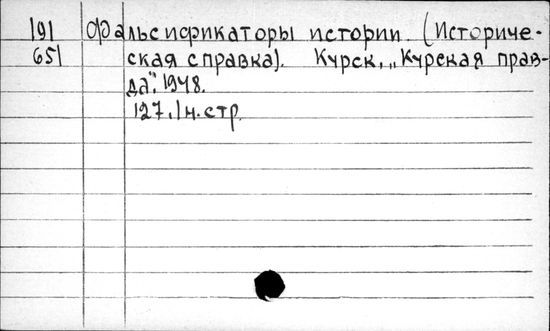 191 Фальсификаторы истории. (Историче-
651 ская справка). Курск, „Курская прав-
да", 1948.
127, 1 н. стр.